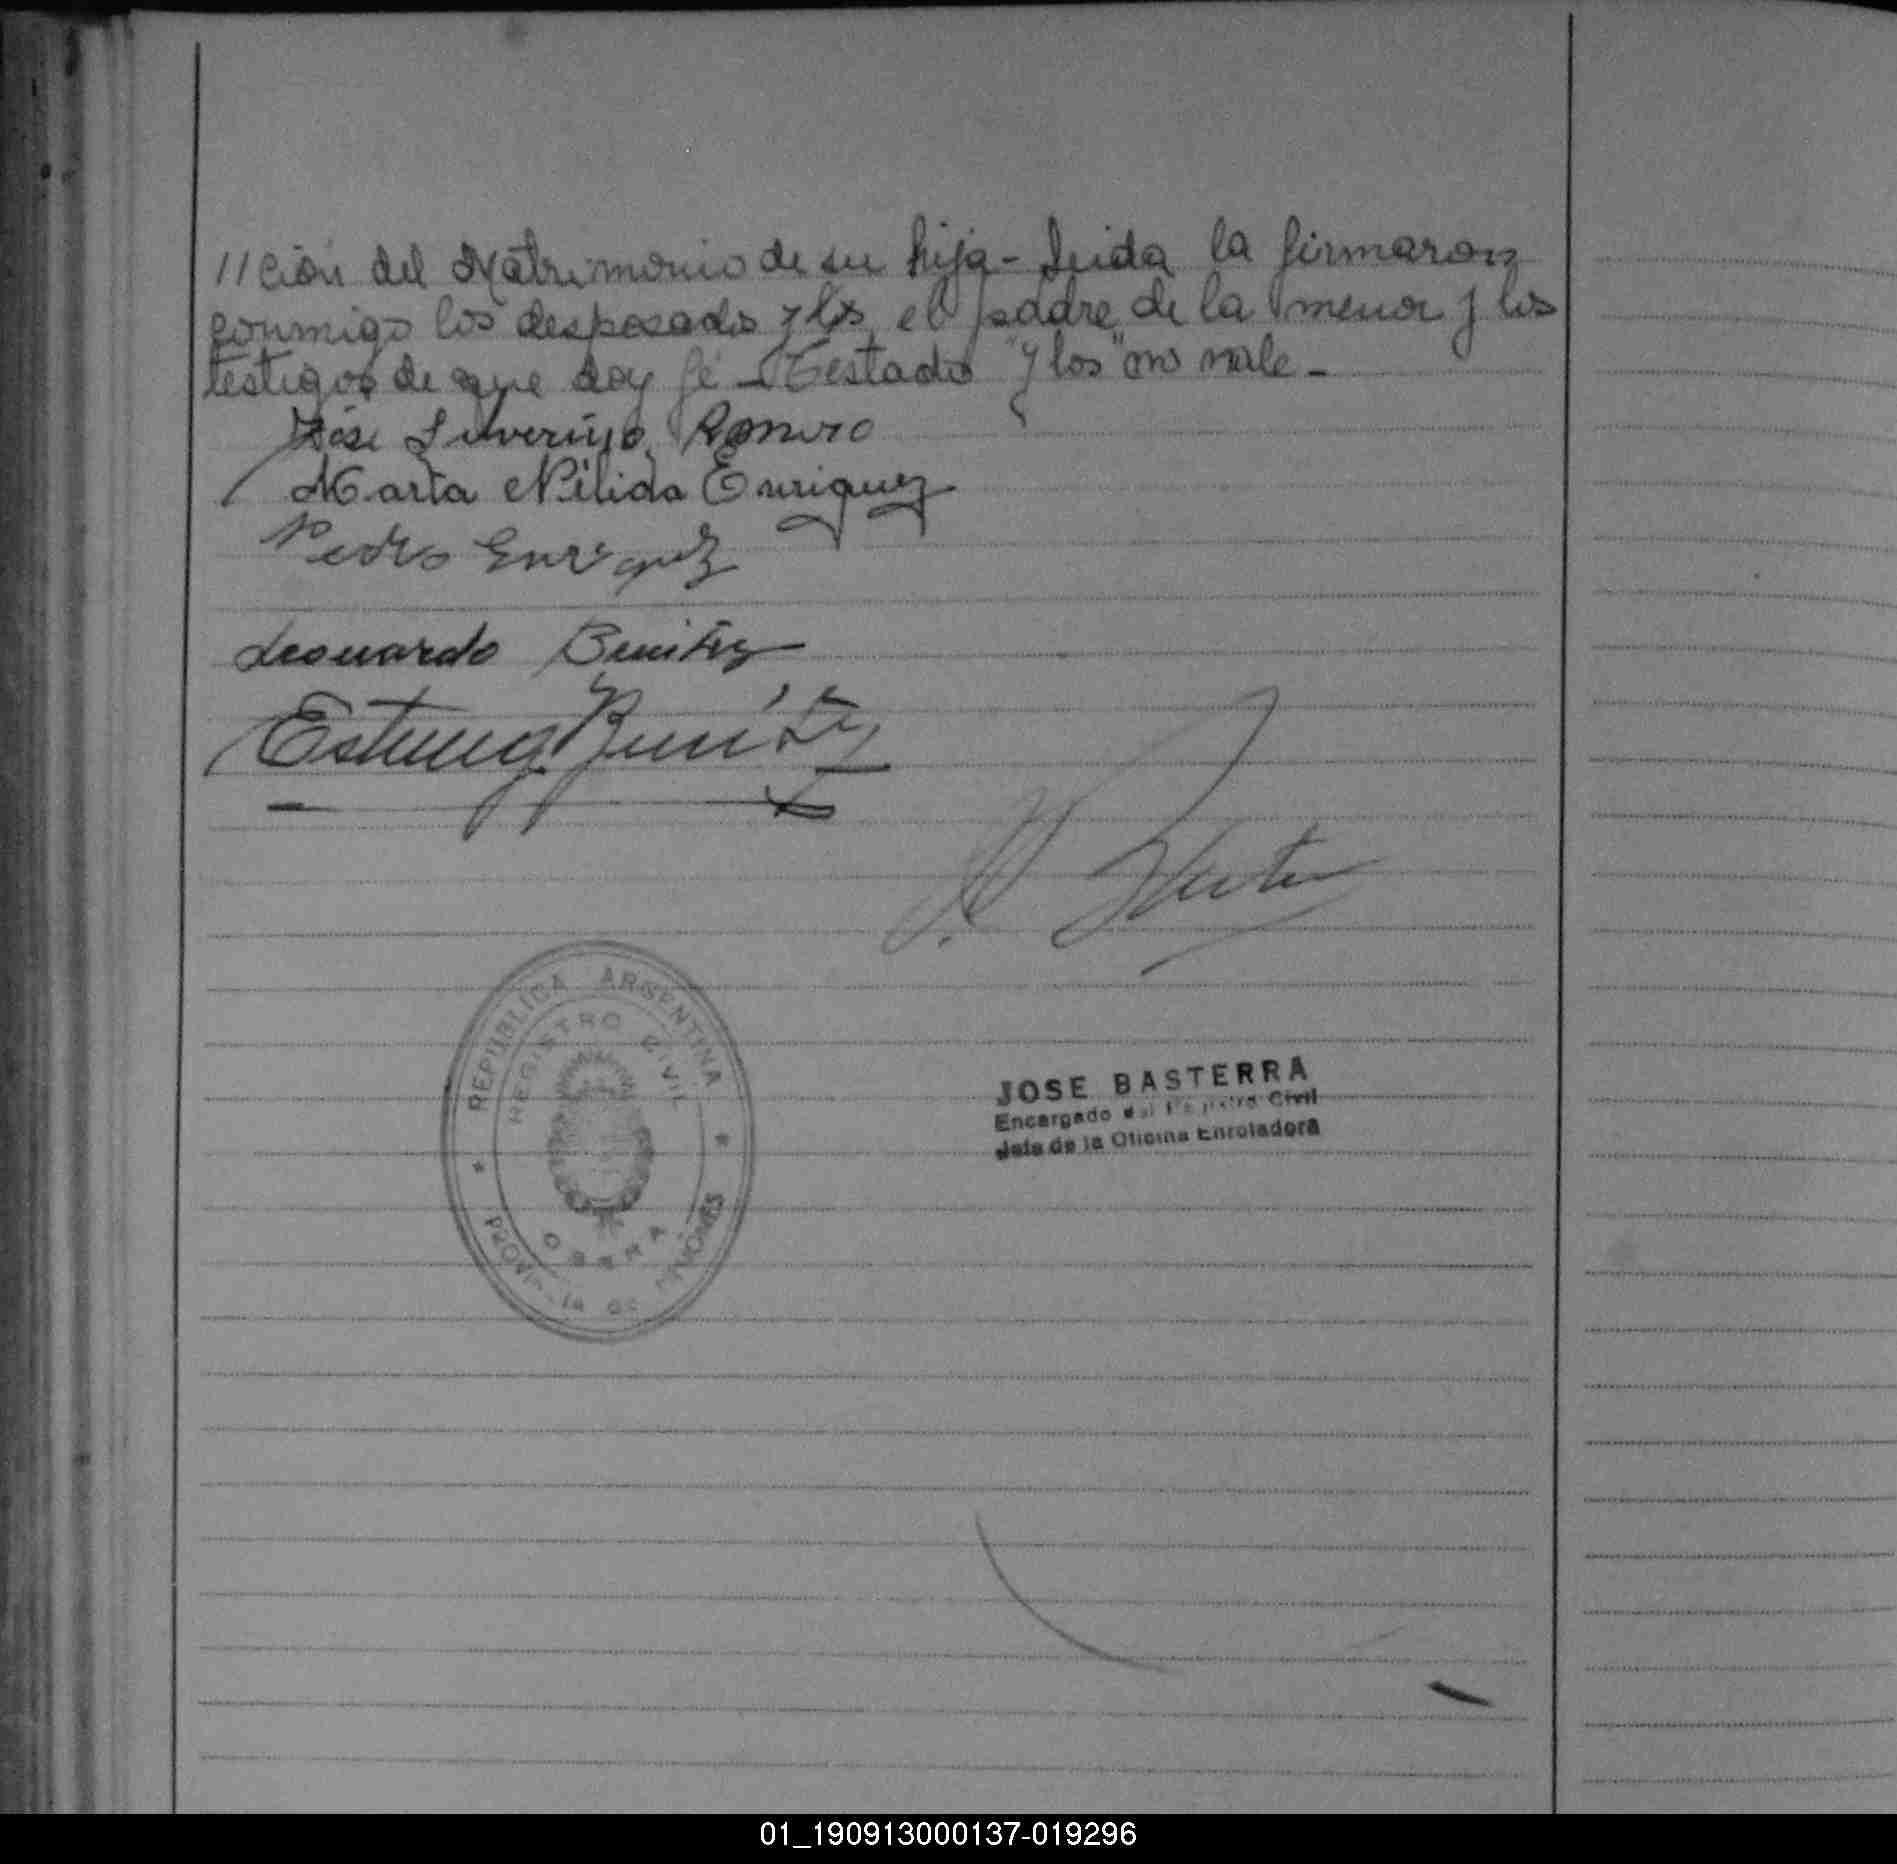 //ción del Matrimonio de su hija - Leida la firmaron
conmigo los desposados y los, el padre de la menor y los
testigos de que doy fé - Testado "y los" no vale -
José Romero
Marta Nélida Enriquez
Pedro Enriquez
Leonardo Benitez
Benítez
REPUBLICA ARGENTINA
REGISTRO CIVIL
OBERA
PROVINCIA DE MISIONES
JOSE BASTERRA
Encargado del Registro Civil
Jefe de la Oficina Enroladora
01_190913000137-019296